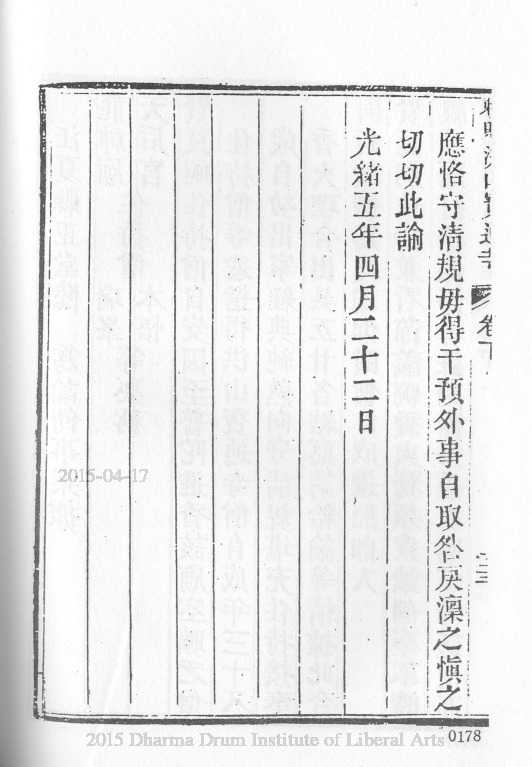 卷下
應恪守清規毋得干預外事自取咎戾凜之愼之
切切此諭
光緒五年四月二十二日
2015-04-17
2015 Dharma Drum Institute of Liberal Arts
0178